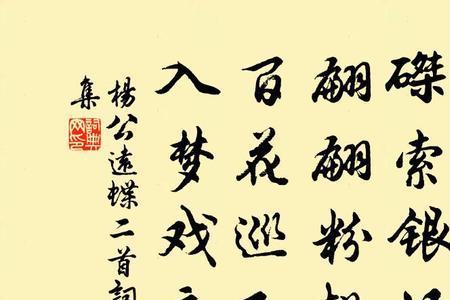 磔索银
翩翩粉
百花巡
入梦戏
杨公远蝶二首词
集